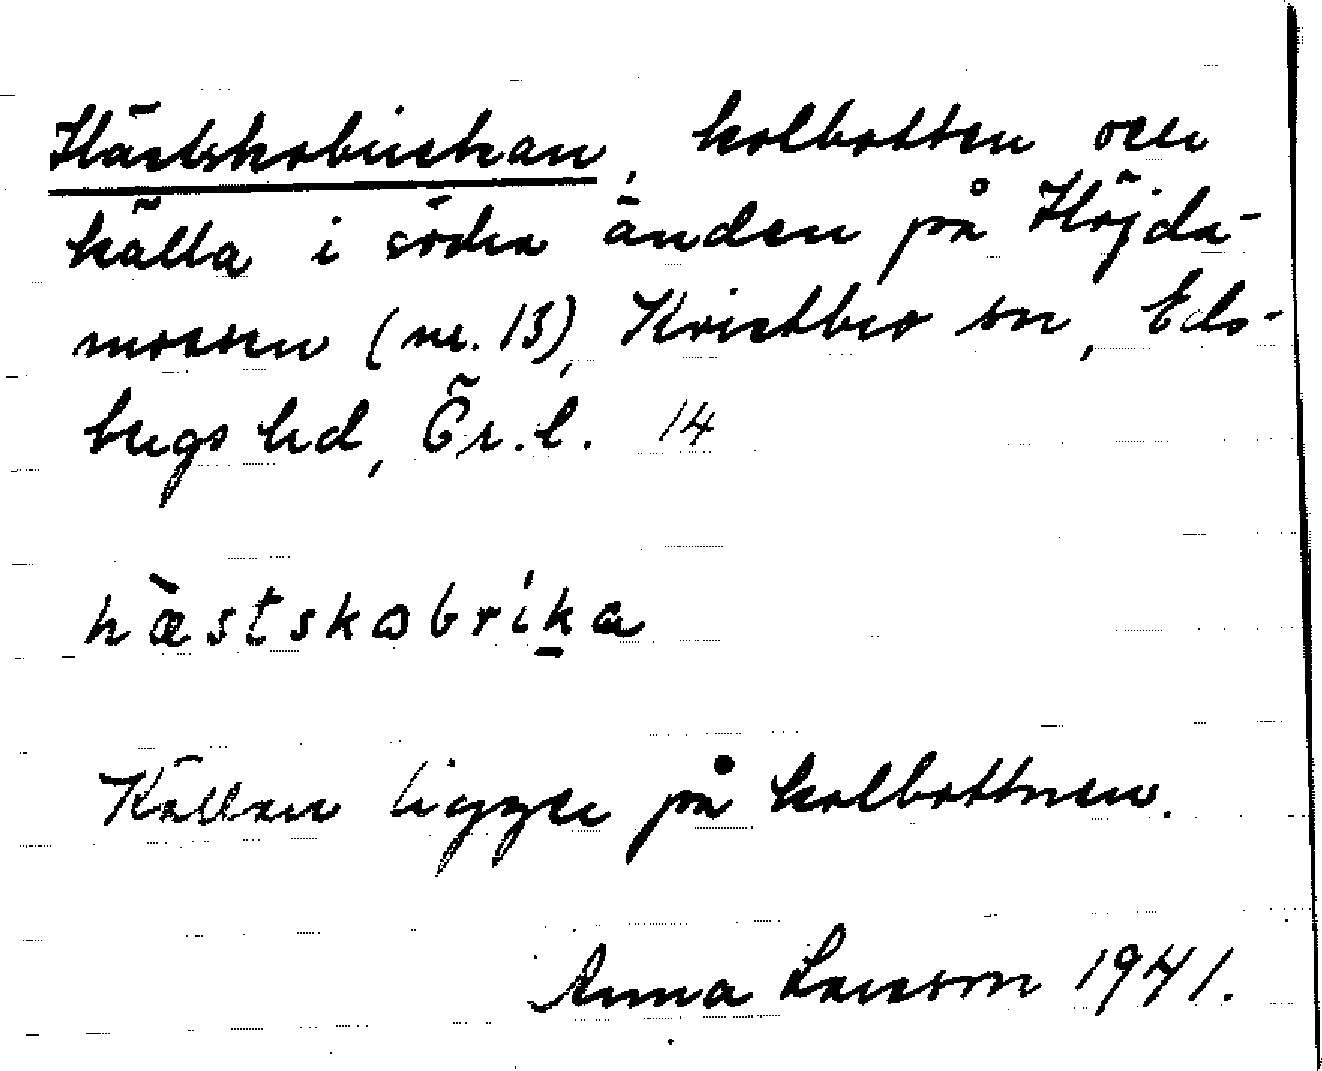 Hästskobrickan, kolbotten och
källa i södra änden på Höjda-
mossen (nr. 13), Kvistbro sn, Eds-
bergs hd, Ör. l. 14
hæ̀stskɷbríka
Källan ligger på kolbottnen.
Anna Larsson 1941.